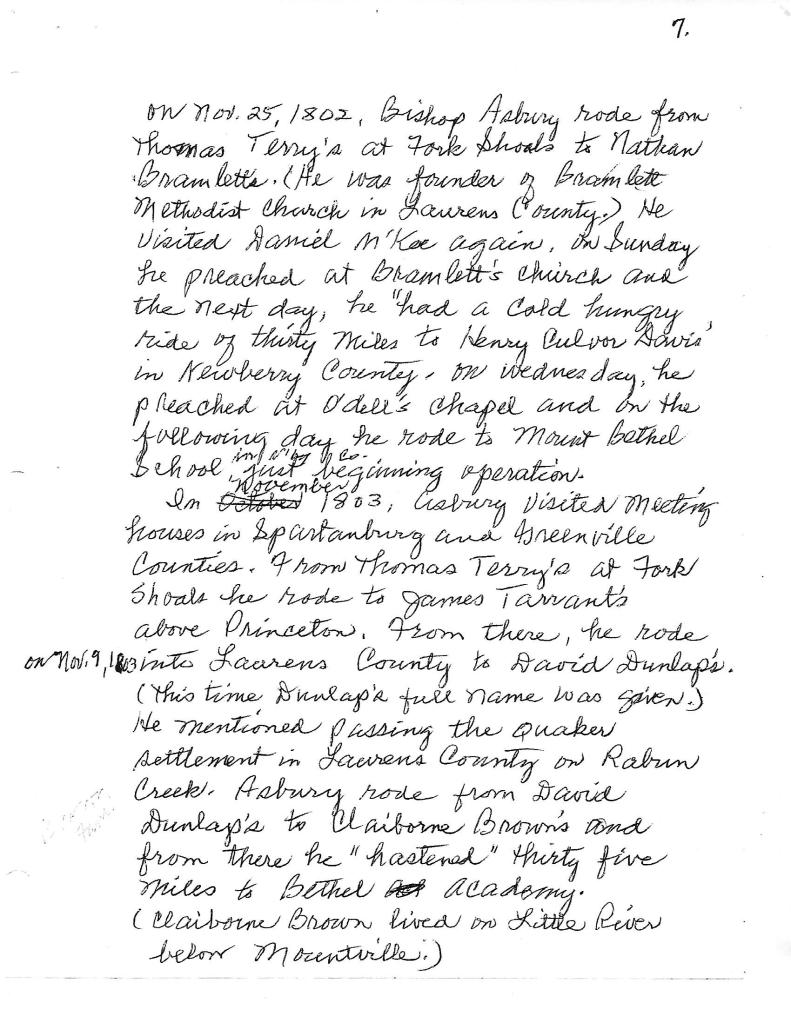 7.
on Nov. 25, 1802, Bishop Asbury rode from
Thomas Terry's at Fork Shoals to Nathan
Bramlett's. (He was founder of Bramlett
Methodist Church in Laurens County.) He
visited Daniel M'Kee again. On Sunday
he preached at Bramlett's church and
the next day, he "had a cold hungry
ride of thirty miles to Henry Culvor Davis'
in Newberry County. On Wednesday, he
preached at Odell's Chapel and on the
following day he rode to Mount Bethel
School, in N'by Co. just beginning operation.
In October November 1803, Asbury visited meeting
houses in Spartanburg and Greenville
Counties. From Thomas Terry's at Fork
Shoals he rode to James Tarrant's
above Princeton. From there, he rode
on Nov. 9, 1803 into Laurens County to David Dunlap's.
(This time Dunlap's full name was given.)
He mentioned passing the Quaker
settlement in Laurens County on Rabun
Creek. Asbury rode from David
Dunlap's to Claiborne Brown's and
from there he "hastened" thirty five
miles to Bethel Academy.
(Claiborne Brown lived on Little River
below Mountville.)